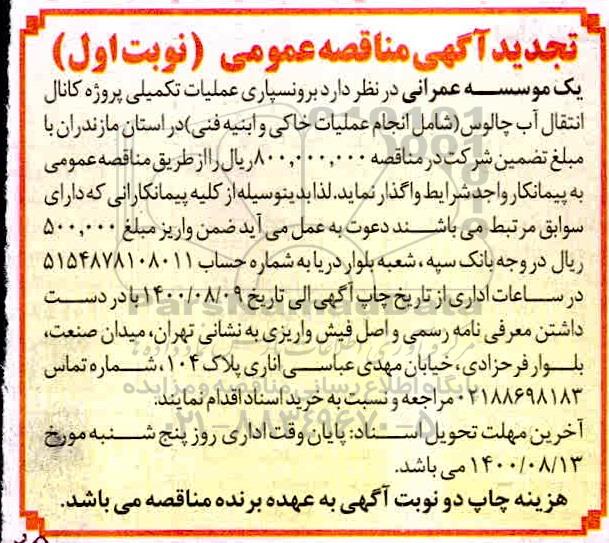 تجدید آگهی مناقصه عمومی (نوبت اول)
یک موسسه عمرانی در نظر دارد برونسپاری عملیات تکمیلی پروژه کانال
انتقال آب چالوس (شامل انجام عملیات خاکی و ابنیه فنی) در استان مازندران با
مبلغ تضمین شرکت در مناقصه ۸۰۰,۰۰۰,۰۰۰ ریال را از طریق مناقصه عمومی
به پیمانکار واجد شرایط واگذار نماید. لذا بدینوسیله از کلیه پیمانکارانی که دارای
سوابق مرتبط می باشند دعوت به عمل می آید ضمن واریز مبلغ ۵۰۰,۰۰۰
ریال در وجه بانک سپه ، شعبه بلوار دریا به شماره حساب ۵۱۵۴۸۷۸۱۰۸۰۱۱
در ساعات اداری از تاریخ چاپ آگهی الی تاریخ ۱۴۰۰/۰۸/۰۹ با در دست
داشتن معرفی نامه رسمی و اصل فیش واریزی به نشانی تهران، میدان صنعت،
بلوار فرحزادی ، خیابان مهدی عباسی اناری پلاک ۱۰۴ ، شماره تماس
۰۲۱۸۸۶۹۸۱۸۳ مراجعه و نسبت به خرید اسناد اقدام نمایند.
آخرین مهلت تحویل اسناد: پایان وقت اداری روز پنج شنبه مورخ
۱۴۰۰/۰۸/۱۳ می باشد.
هزینه چاپ دو نوبت آگهی به عهده برنده مناقصه می باشد.
ParsNamadData
پایگاه اطلاع رسانی مناقصه و مزایده
۰۲۱-۸۸۳۴۹۶۷۰-۵